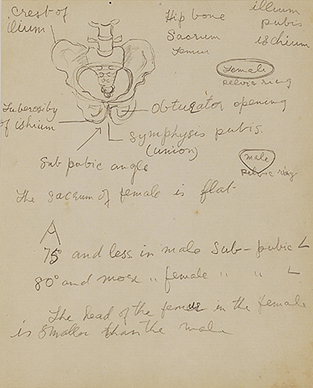 crest of
ilium
Hip bone
Sacrum
Femur
illium
pubis
ischium
Female
pelvic ring
Tuberosity
of ishrium
Obtugator opening
Symphysis pubis.
(union)
Sub pubic angle
male
Pelvic ring
The sacrum of female is flat-
75° and less in male Sub-pubic L
80° and more " female " " L
The head of the femur in the female
is smaller than the male